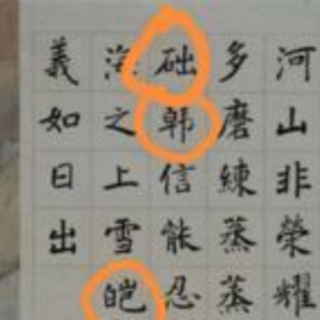 河山非榮耀
多磨練蒸蒸
础韩信能忍
海之上雪皑
義如日出